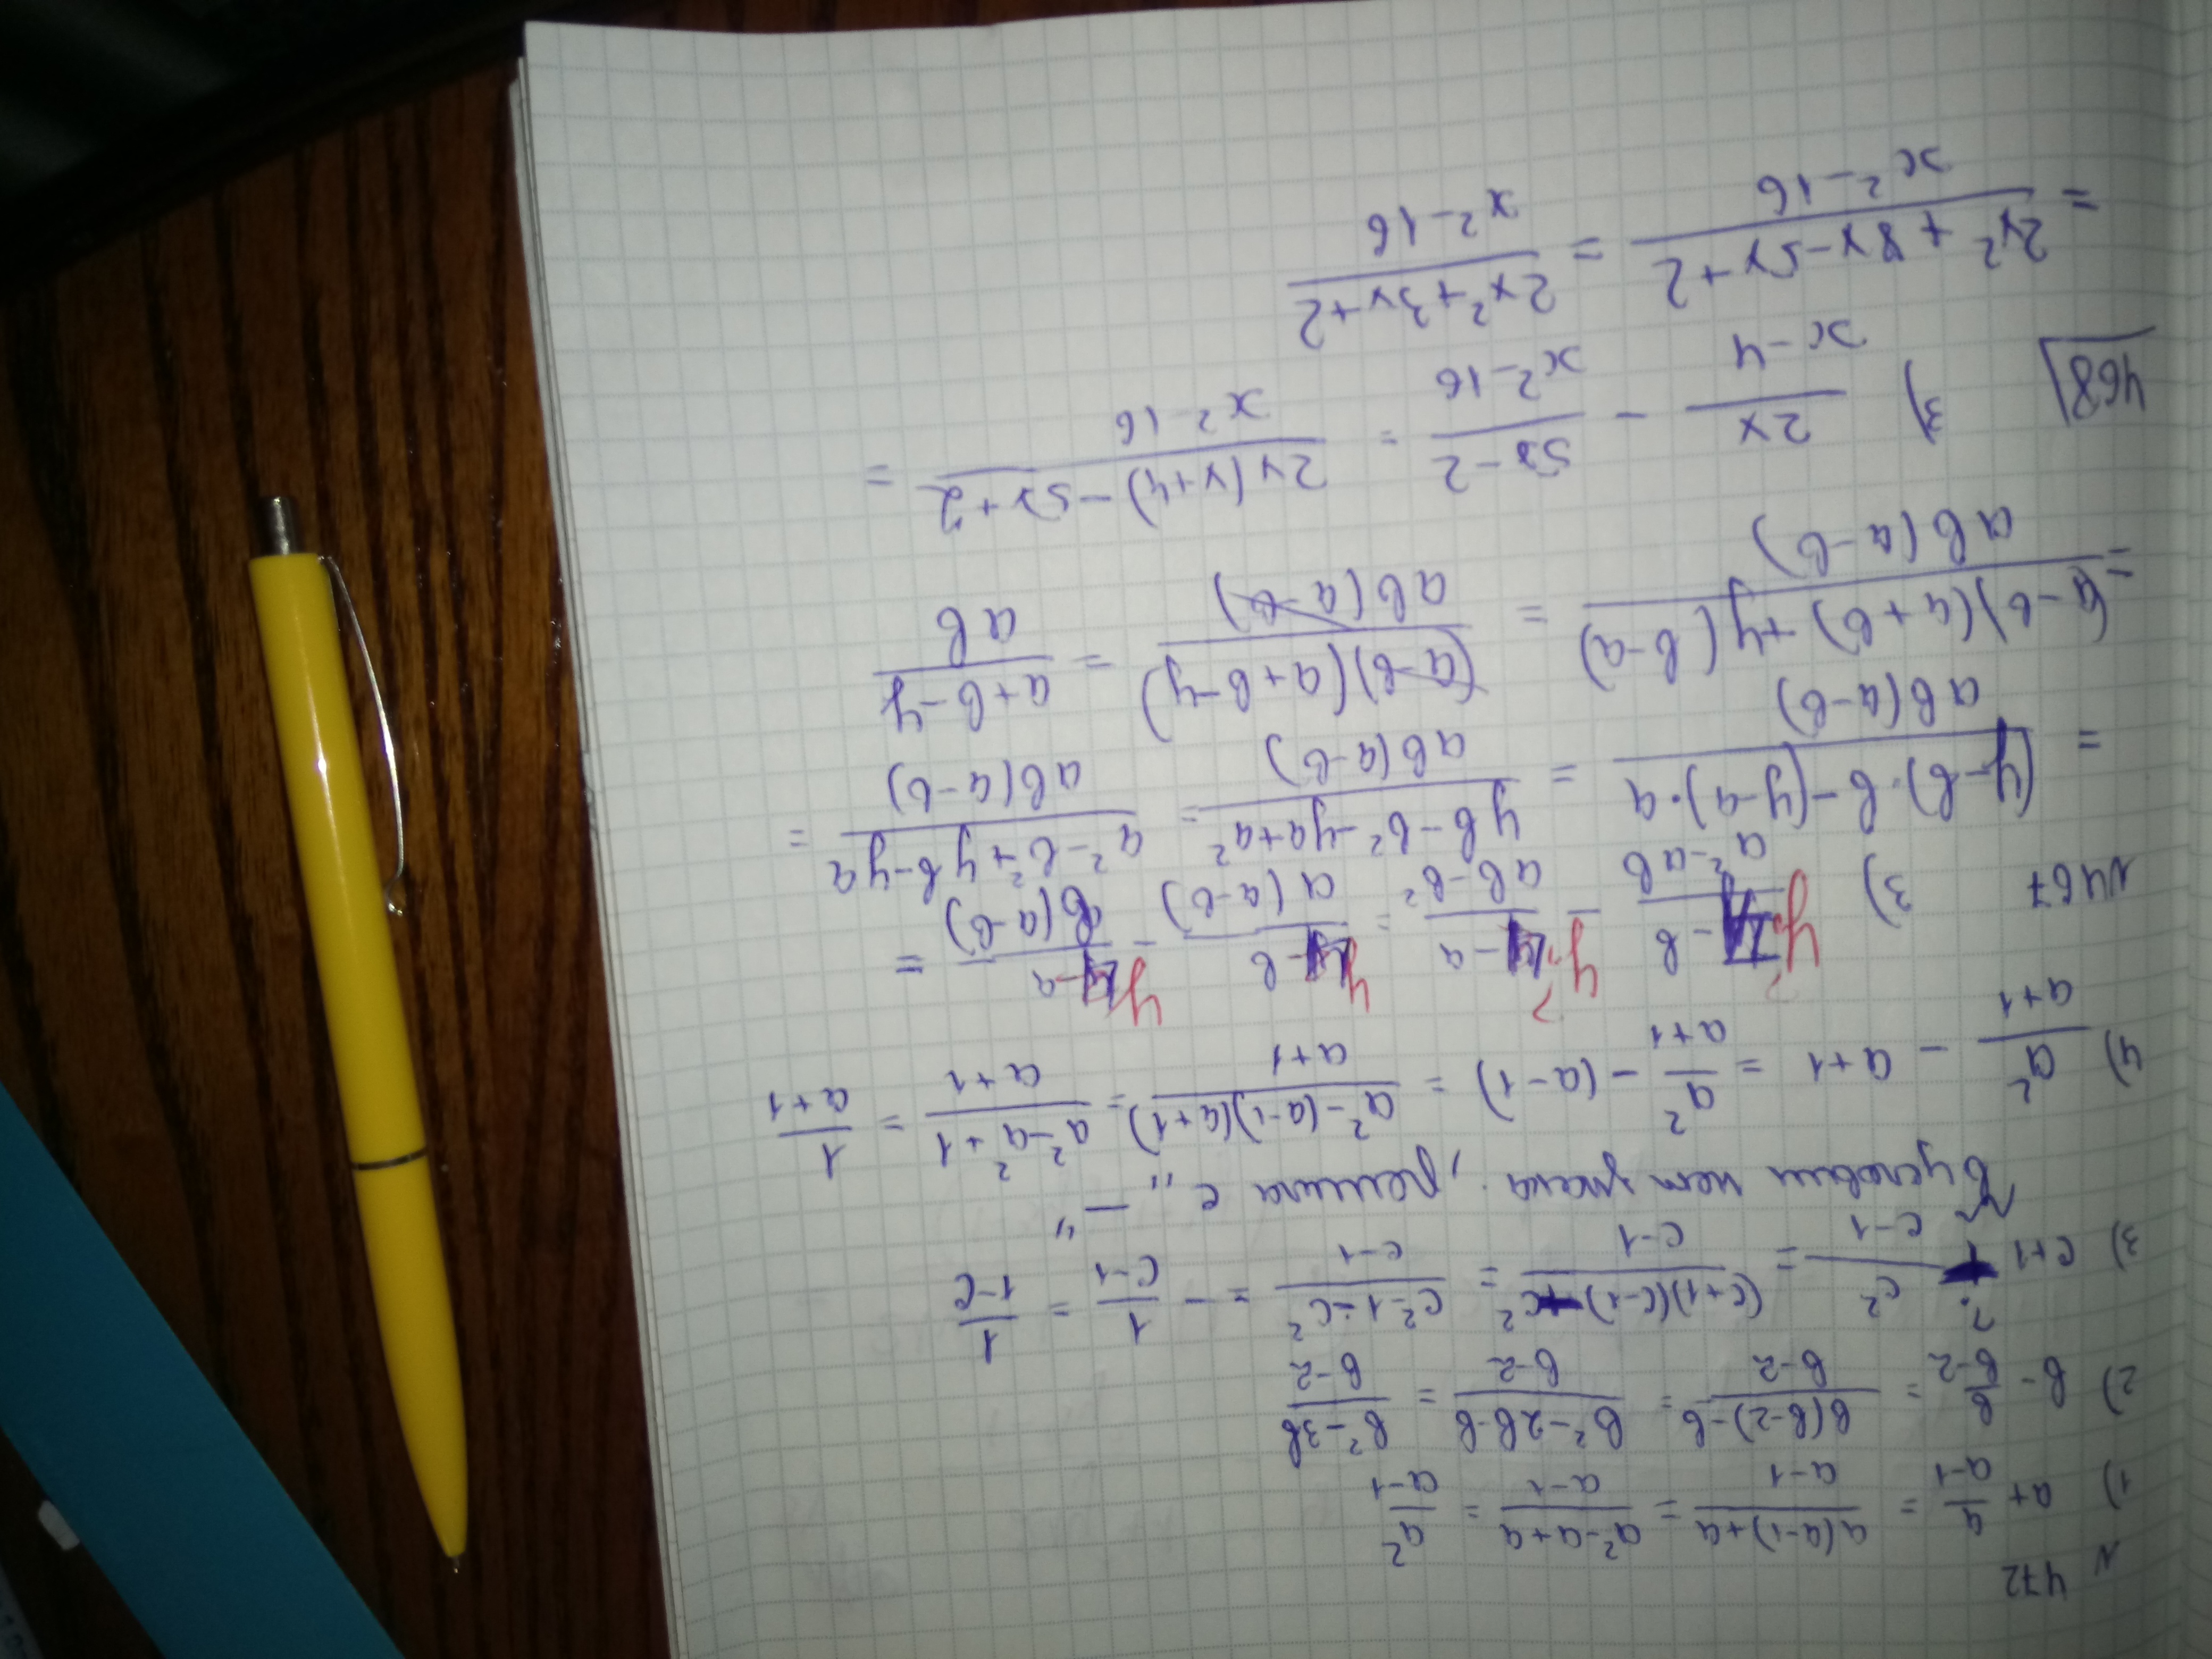 N 472
1) a + a/(a-1) = (a(a-1)+a)/(a-1) = (a²-a+a)/(a-1) = a²/(a-1)
2) в - в/(в-2) = (в(в-2)-в)/(в-2) = (в²-2в-в)/(в-2) = (в²-3в)/(в-2)
3) c+1 - ? c²/(c-1) = ((c+1)(c-1)-c²)/(c-1) = (c²-1-c²)/(c-1) = - 1/(c-1) = 1/(1-c)
В условии нет знака, решила с „-"
4) a²/(a+1) - a+1 = a²/(a+1) - (a-1) = (a²-(a-1)(a+1))/(a+1) = (a²-a²+1)/(a+1) = 1/(a+1)
N467 3) (y-в)/(a²-aв) - (y-a)/(aв-в²) = (y-в)/(a(a-в)) - (y-a)/(в(a-в)) =
= ((y-в)·в-(y-a)·a)/(aв(a-в)) = (yв-в²-ya+a²)/(aв(a-в)) = (a²-в²+yв-ya)/(aв(a-в)) =
= ((a-в)(a+в)+y(в-a))/(aв(a-в)) = ((a-в)(a+в-y))/(aв(a-в)) = (a+в-y)/(aв)
468 3) 2x/(x-4) - (5x-2)/(x²-16) = (2x(x+4)-5x+2)/(x²-16) =
= (2x²+8x-5x+2)/(x²-16) = (2x²+3x+2)/(x²-16)